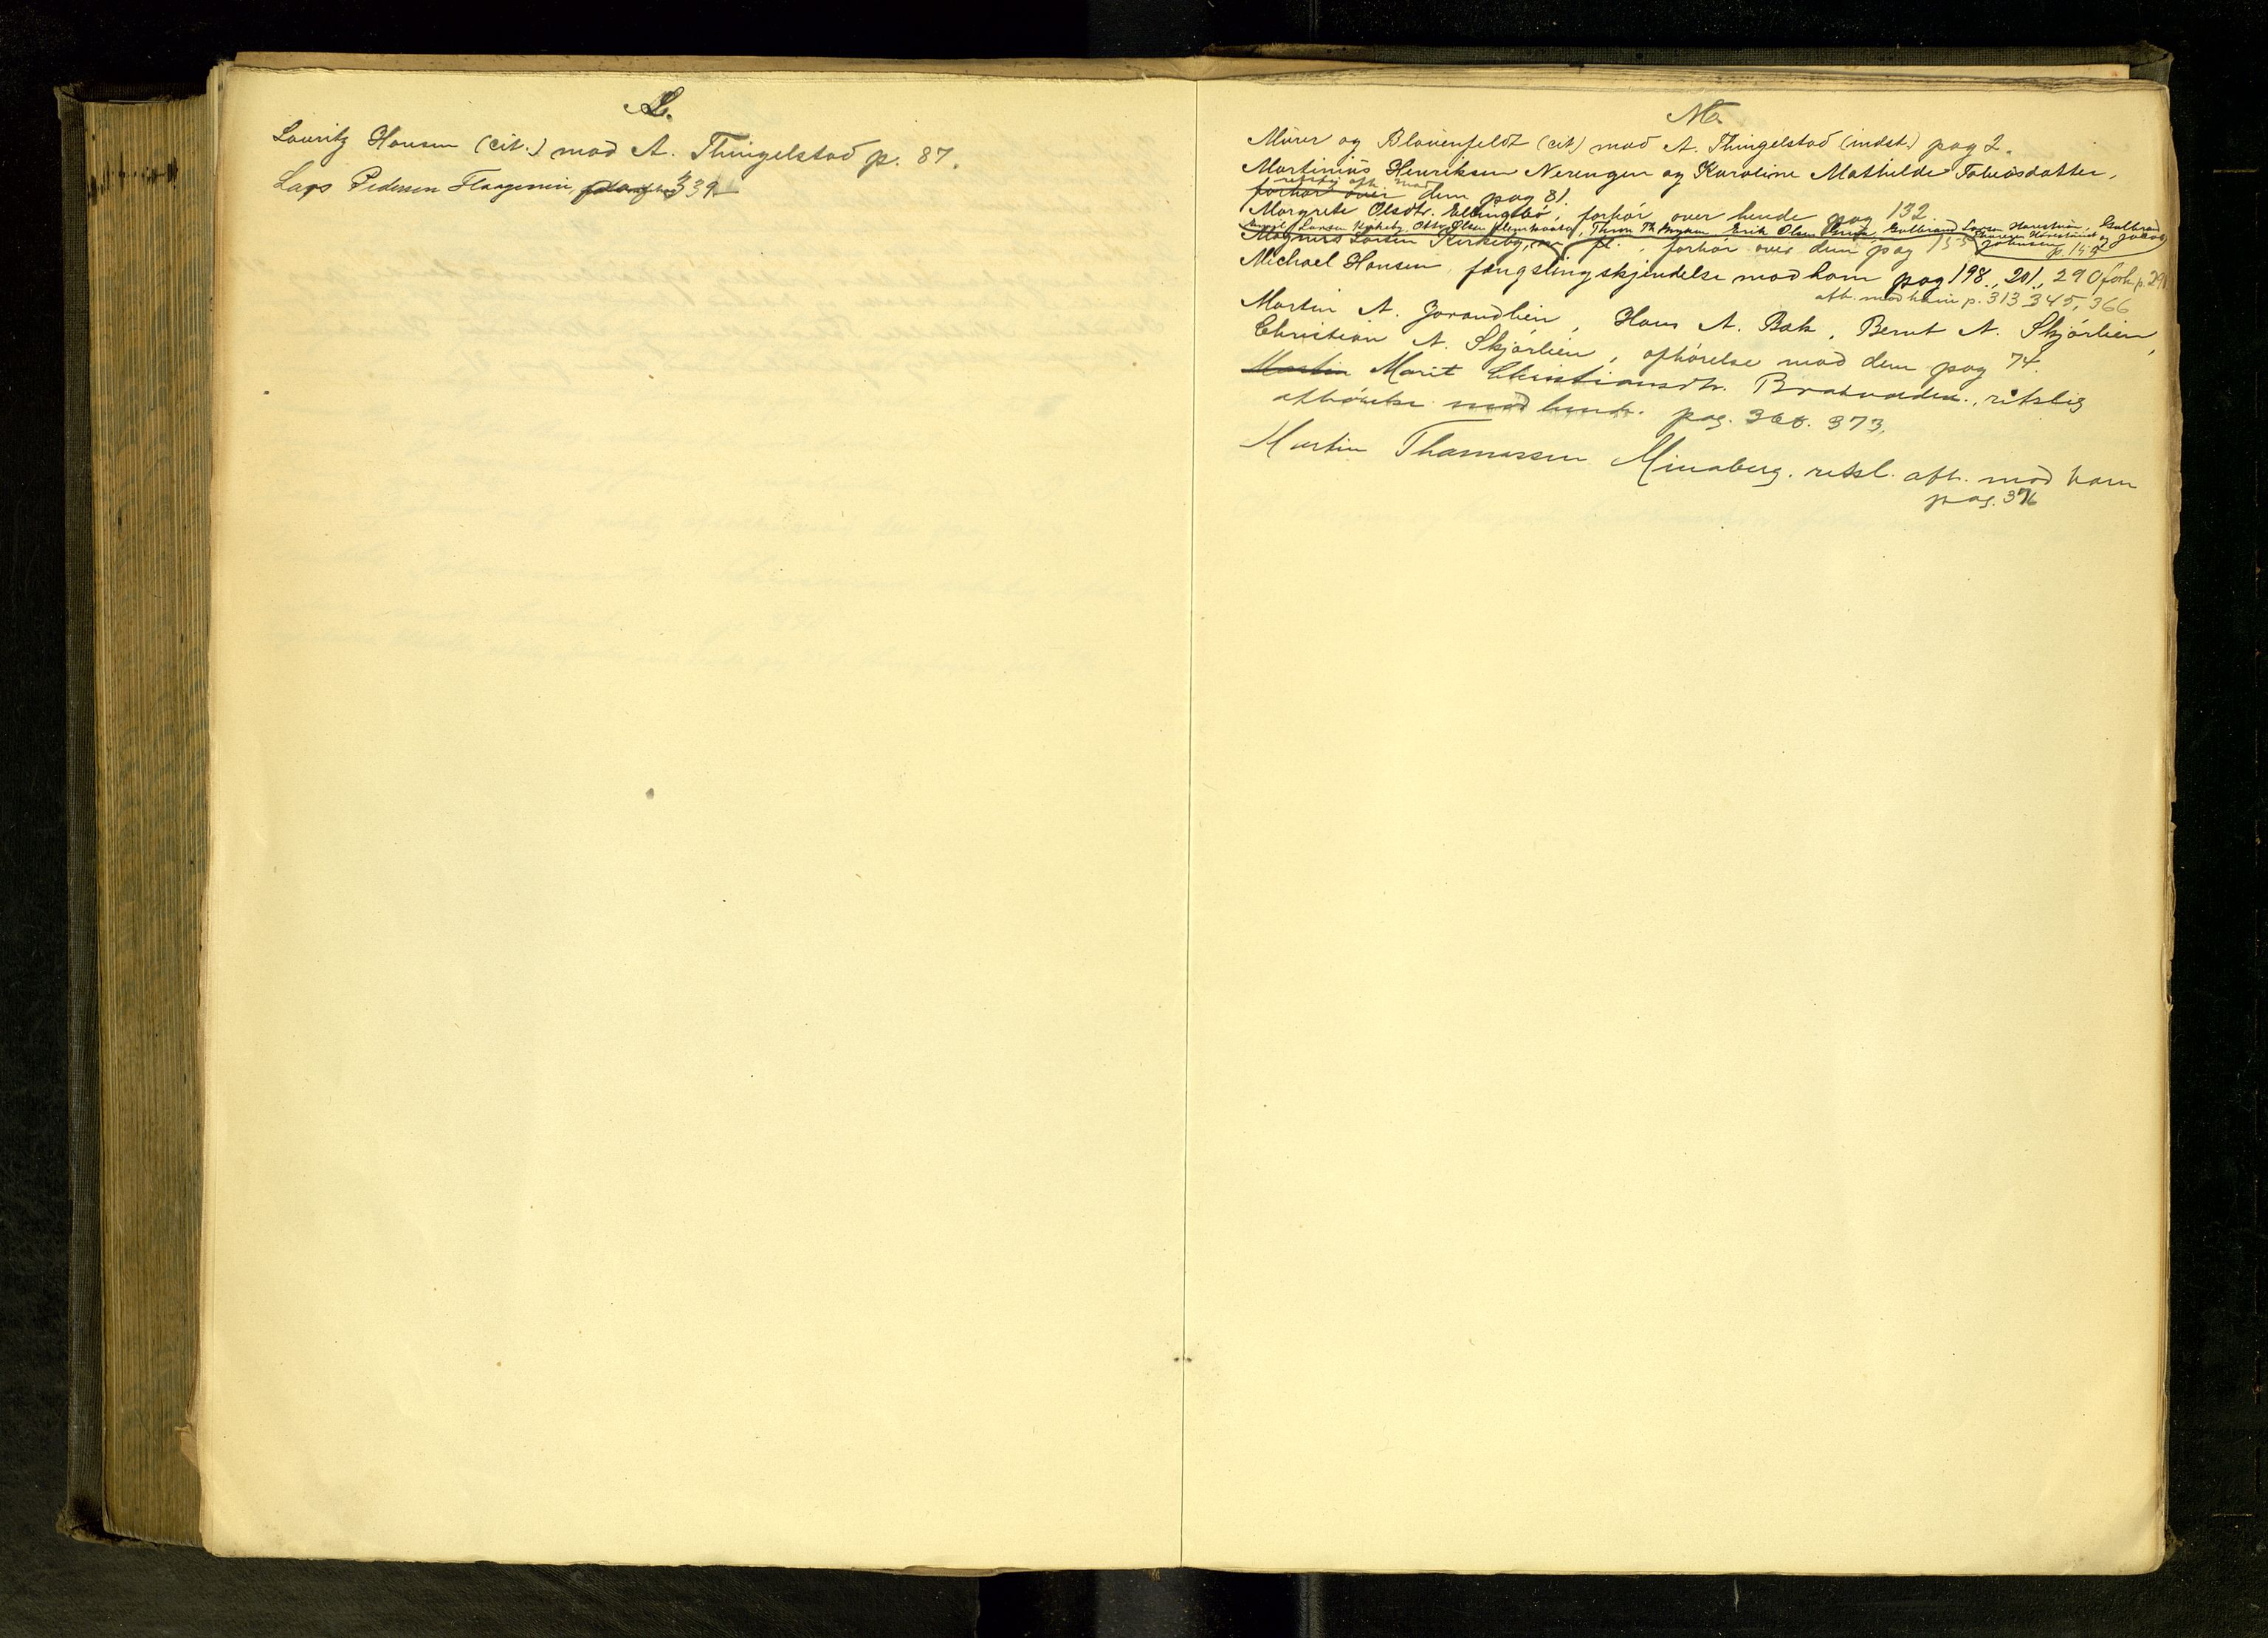 L.
Lauritz Hansen (cit.) mod A. Thingelstad p. 87.
Lars Pedersen Flaagenin, 339
M.
Mürer og Blauenfeldt (cit) mod A. Thingelstad (indst.) pag 2.
Martinius Henriksen Nerengen og Karoline Mathilde Tobiasdatter,
retslig afh. mod
forhør over dem pag 81.
Margrete Olsdtr. Ellingsbø, forhør over hende pag 132.
Larsen Kirkeby, Otto Olsen Thron Th. Erik Olsen Gulbrand Larsen Gulbrand
Magnus Larsen Kirkeby, fl., forhør over dem pag 155 og Jakob
Johnsen p. 155
Michael Hansen, fængslingskjendelse mod ham pag 198., 201., 290 forh. p. 291
afh. mod ham p. 313 345, 366
Martin A. Jorandlien, Hans A. Bak, Bernt A. Skjørlien,
Christian A. Skjørlien, afhørelse mod dem pag 74.
Martin Marit Christiansdtr. retslig
afhørelse mod hende. pag. 368. 373.
Martin Thomassen Minaberg. retsl. afh. mod ham
pag. 376